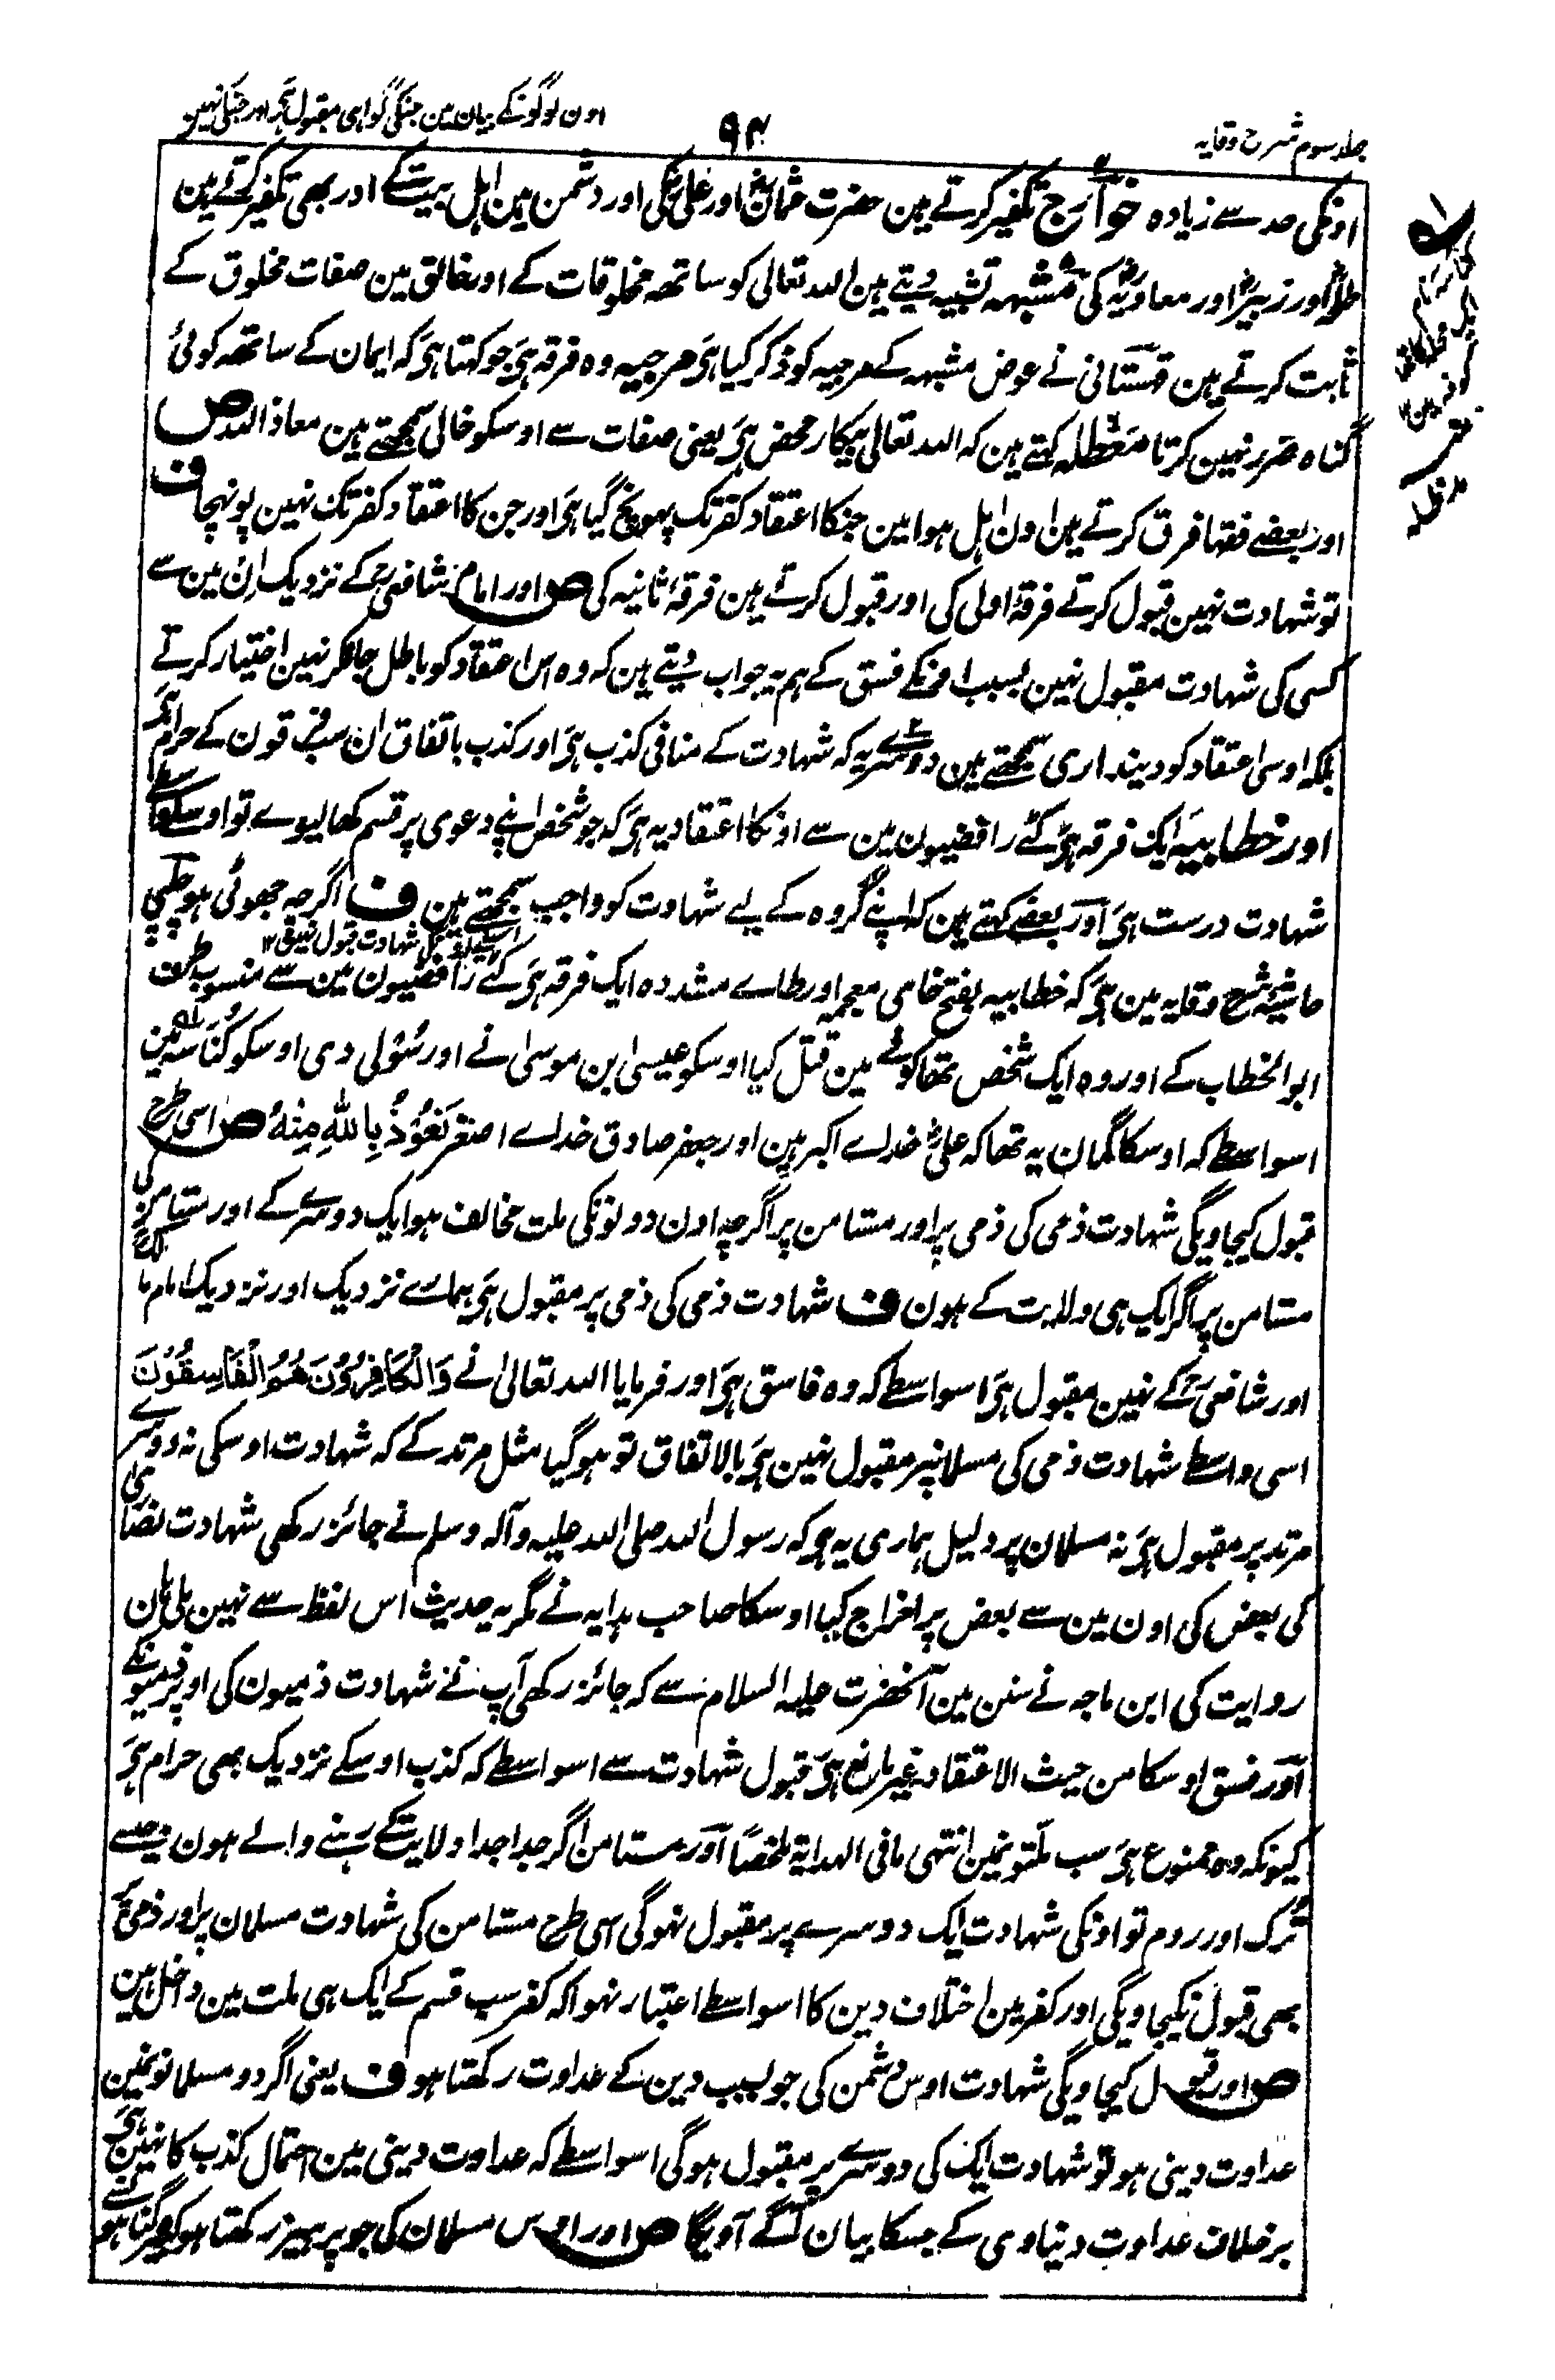 جلد سوم شرح وقایہ
۹۴
اون لوگونکے بیان مین جنکی گواہی مقبول ہی اور جنکی نہین
اونکی حد سے زیادہ خوارج تکفیر کرتے ہین حضرت عثمانؓ اور علیؓ کی اور دشمن ہین اہل بیت کے اور بھی تکفیر کرتے ہین
طلحہؓ اور زبیرؓ اور معاویہؓ کی مشبہہ تشبیہ دیتے ہین اللہ تعالی کو ساتھہ مخلوقات کے اور خالق مین صفات مخلوق کے
ثابت کرتے ہین قہستانی نے عوض مشبہہ کے مرجیہ کو ذکر کیا ہی مرجیہ وہ فرقہ ہی جو کہتا ہی کہ ایمان کے ساتھہ کوئی
گناہ ضرر نہین کرتا معطلہ کہتے ہین کہ اللہ تعالی بیکار محض ہی یعنی صفات سے اوسکو خالی سمجھتے ہین معاذ اللہ ص
اور بعضے فقہا فرق کرتے ہین اون اہل ہوا مین جنکا اعتقاد کفر تک پہونچ گیا ہی اور جن کا اعتقاد کفر تک نہین پونہچا ف
تو شہادت نہین قبول کرتے فرقۂ اولی کی اور قبول کرتے ہین فرقۂ ثانیہ کی ص اور امام شافعیؒ کے نزدیک ان مین سے
کسی کی شہادت مقبول نہین بسبب اونکے فسق کے ہم یہ جواب دیتے ہین کہ وہ اس اعتقاد کو باطل جانکر نہین اختیار کرتے
بلکہ اوسی اعتقاد کو دینداری سمجھتے ہین دوسرے یہ کہ شہادت کے منافی کذب ہی اور کذب باتفاق ان سب فرقون کے حرام ہی
اور خطابیہ ایک فرقہ ہی کٹے رافضیون مین سے اونکا اعتقاد یہ ہی کہ جو شخص اپنے دعوی پر قسم کھا لیوے تو اوسکے واسطے
شہادت درست ہی اور بعضے کہتے ہین کہ اپنے گروہ کے لیے شہادت کو واجب سمجھتے ہین ف اگرچہ جھوٹی ہو چلپی
اسلیے انکی شہادت قبول نہین ۱۲
حاشیۂ شرح وقایہ مین ہی کہ خطابیہ بفتح خاے معجمہ اور طاے مشددہ ایک فرقہ ہی کٹے رافضیون مین سے منسوب طرف
ابو الخطاب کے اور وہ ایک شخص تھا کوفے مین قتل کیا اوسکو عیسیٰ ابن موسیٰ نے اور سُولی دی اوسکو کُنَاسہ مین
اسواسطے کہ اوسکا گمان یہ تھا کہ علیؓ خداے اکبر ہین اور جعفر صادق خداے اصغر نَعُوْذُ بِاللّٰہِ مِنْہُ ص اسی طرح
قبول کیجاویگی شہادت ذمی کی ذمی پر اور مستامن پر اگرچہ اون دونونکی ملت مخالف ہو ایک دوسرے کے اور مستامن کی
مستامن پر اگر ایک ہی ولایت کے ہون ف شہادت ذمی کی ذمی پر مقبول ہی ہمارے نزدیک اور نزدیک امام مالکؒ
اور شافعیؒ کے نہین مقبول ہی اسواسطے کہ وہ فاسق ہی اور فرمایا اللہ تعالیٰ نے وَالْکَافِرُوْنَ ھُمُ الْفَاسِقُوْنَ
اسی واسطے شہادت ذمی کی مسلمانپر مقبول نہین ہی بالاتفاق تو ہو گیا مثل مرتد کے کہ شہادت اوسکی نہ دوسرے
مرتد پر مقبول ہی نہ مسلمان پر دلیل ہماری یہ ہی کہ رسول اللہ صلی اللہ علیہ وآلہ وسلم نے جائز رکھی شہادت نصاریٰ
کی بعض کی اون مین سے بعض پر اخراج کیا اوسکا صاحب ہدایہ نے مگر یہ حدیث اس لفظ سے نہین ملی ہان
روایت کی ابن ماجہ نے سنن مین آنحضرت علیہ السلام سے کہ جائز رکھی آپ نے شہادت ذمیون کی اوپر ذمیونکے
اور فسق اوسکا من حیث الاعتقاد غیر مانع ہی قبول شہادت سے اسواسطے کہ کذب اوسکے نزدیک بھی حرام ہی
کیونکہ وہ ممنوع ہی سب ملتونمین انتہی مافی الہدایۃ ملخصاً اور مستامن اگر جدا جدا ولایت کے رہنے والے ہون جیسے
ترک اور روم تو اونکی شہادت ایک دوسرے پر مقبول نہوگی اسی طرح مستامن کی شہادت مسلمان پر اور ذمی پر
بھی قبول نکیجاویگی اور کفر مین اختلاف دین کا اسواسطے اعتبار نہوا کہ کفر سب قسم کے ایک ہی ملت مین داخل ہین
ص اور قبول کیجاویگی شہادت اوس دشمن کی جو بسبب دین کے عداوت رکھتا ہو ف یعنی اگر دو مسلمانونمین
عداوت دینی ہو تو شہادت ایک کی دوسرے پر مقبول ہوگی اسواسطے کہ عداوت دینی مین احتمال کذب کا نہین ہی
برخلاف عداوت دنیاوی کے جسکا بیان آگے آویگا ص اور اوس مسلمان کی جو پرہیز رکھتا ہو کبیرہ گناہ سے